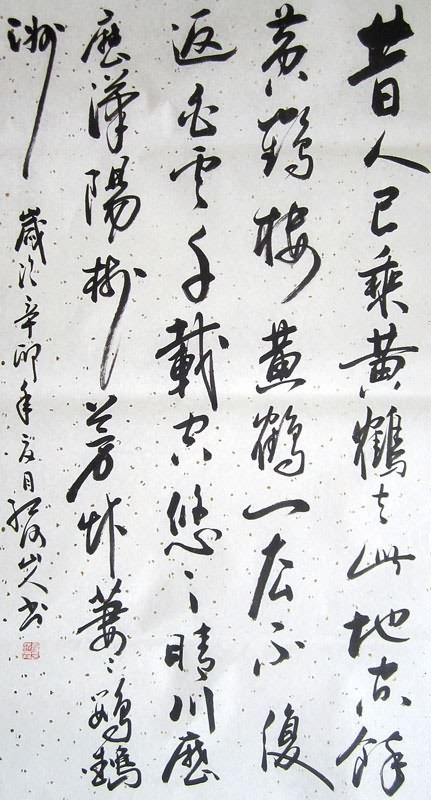 昔人已乘黄鶴去此地空餘
黄鶴樓黄鶴一去不復
返白雲千載空悠々晴川歷
歷漢陽樹芳艸萋々鸚鵡
洲
歲次辛卯年夏月山人书